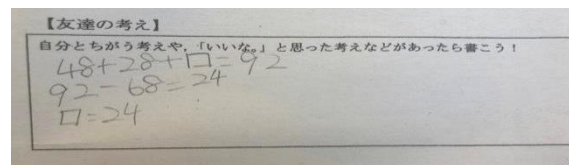 【友達の考え】
自分とちがう考えや,「いいな。」と思った考えなどがあったら書こう！
48+28+□=92
92-68=24
□=24